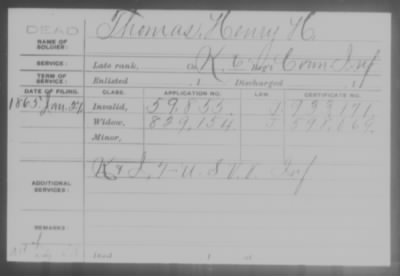 DEAD
NAME OF SOLDIER: Thomas, Henry H.
SERVICE: Late rank, Co. K, 6 Reg't Conn Inf
TERM OF SERVICE: Enlisted , 1 Discharged , 1
DATE OF FILING. CLASS. APPLICATION NO. LAW. CERTIFICATE NO.
1865 Jan. 21 Invalid, 59.855. 733,171.
Widow, 839,154. 598,069.
Minor,
ADDITIONAL SERVICES: K & I, 7- U.S.V.V. Inf
REMARKS:
Died , 1 at